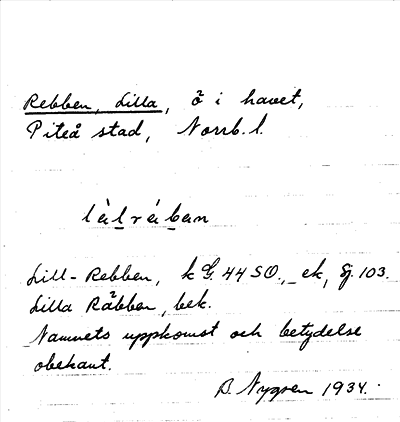 Rebben, Lilla, ö i havet,
Piteå stad, Norrb. l.
lìlràban
Lill-Rebben, k G. 44 SO., ek, Sj. 103.
Lilla Räbben, bek.
Namnets uppkomst och betydelse
obekant.
B. Nygren 1934.